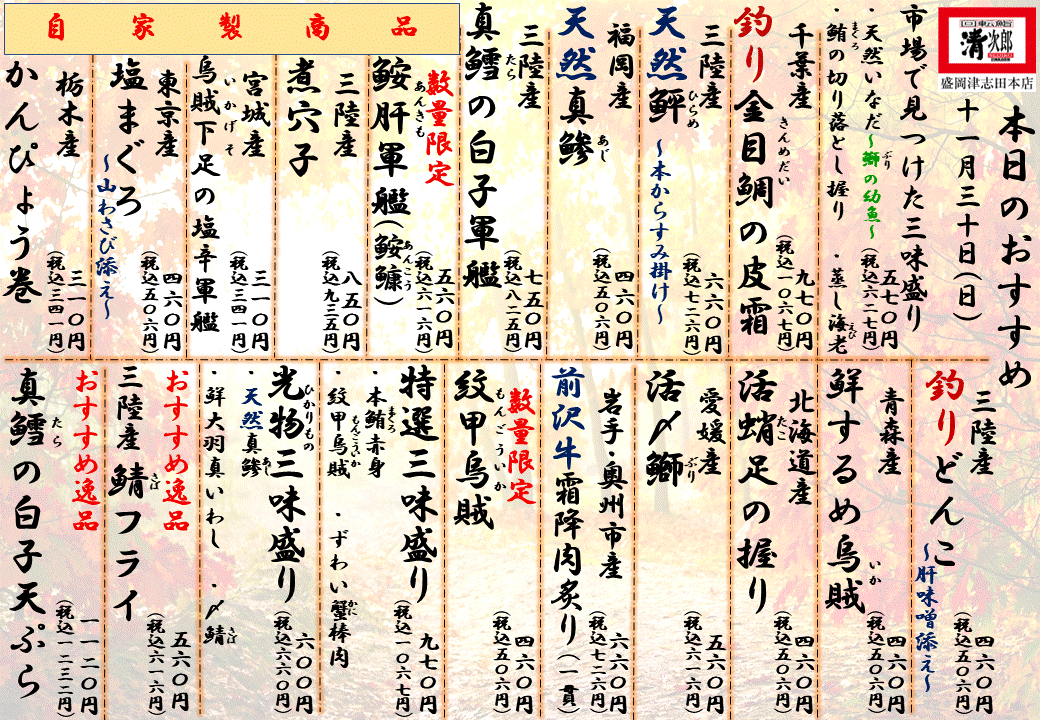 回転鮨
清次郎
盛岡津志田本店
本日のおすすめ
十一月三十日(日)
市場で見つけた三味盛り
・天然いなだ~鰤の幼魚~
ぶり
・鮪の切り落とし握り ・蒸し海老
まぐろ
えび
五七〇円
(税込六二七円)
千葉産
釣り金目鯛の皮霜
きんめだい
九七〇円
(税込一〇六七円)
三陸産
天然鮃
ひらめ
~本からすみ掛け~
六六〇円
(税込七二六円)
福岡産
天然真鯵
あじ
四六〇円
(税込五〇六円)
三陸産
真鱈の白子軍艦
たら
七五〇円
(税込八二五円)
自家製商品
数量限定
鮟肝軍艦(鮟鱇)
あんきも
あんこう
五六〇円
(税込六一六円)
三陸産
煮穴子
八五〇円
(税込九三五円)
宮城産
烏賊下足の塩辛軍艦
いかげそ
三一〇円
(税込三四一円)
東京産
塩まぐろ
~山わさび添え~
四六〇円
(税込五〇六円)
栃木産
かんぴょう巻
三一〇円
(税込三四一円)
三陸産
釣りどんこ
~肝味噌添え~
四六〇円
(税込五〇六円)
青森産
鮮するめ烏賊
いか
四六〇円
(税込五〇六円)
北海道産
活蛸足の握り
たこ
四六〇円
(税込五〇六円)
愛媛産
活〆鰤
ぶり
五六〇円
(税込六一六円)
岩手・奥州市産
前沢牛霜降肉炙り(一貫)
六六〇円
(税込七二六円)
数量限定
紋甲烏賊
もんごういか
四六〇円
(税込五〇六円)
特選三味盛り
・本鮪赤身
まぐろ
・紋甲烏賊 ・ずわい蟹棒肉
もんごういか
かに
九七〇円
(税込一〇六七円)
光物三味盛り
ひかりもの
・天然真鯵
あじ
・鮮大羽真いわし ・〆鯖
さば
六〇〇円
(税込六六〇円)
おすすめ逸品
三陸産 鯖フライ
さば
五六〇円
(税込六一六円)
おすすめ逸品
真鱈の白子天ぷら
たら
一一二〇円
(税込一二三二円)